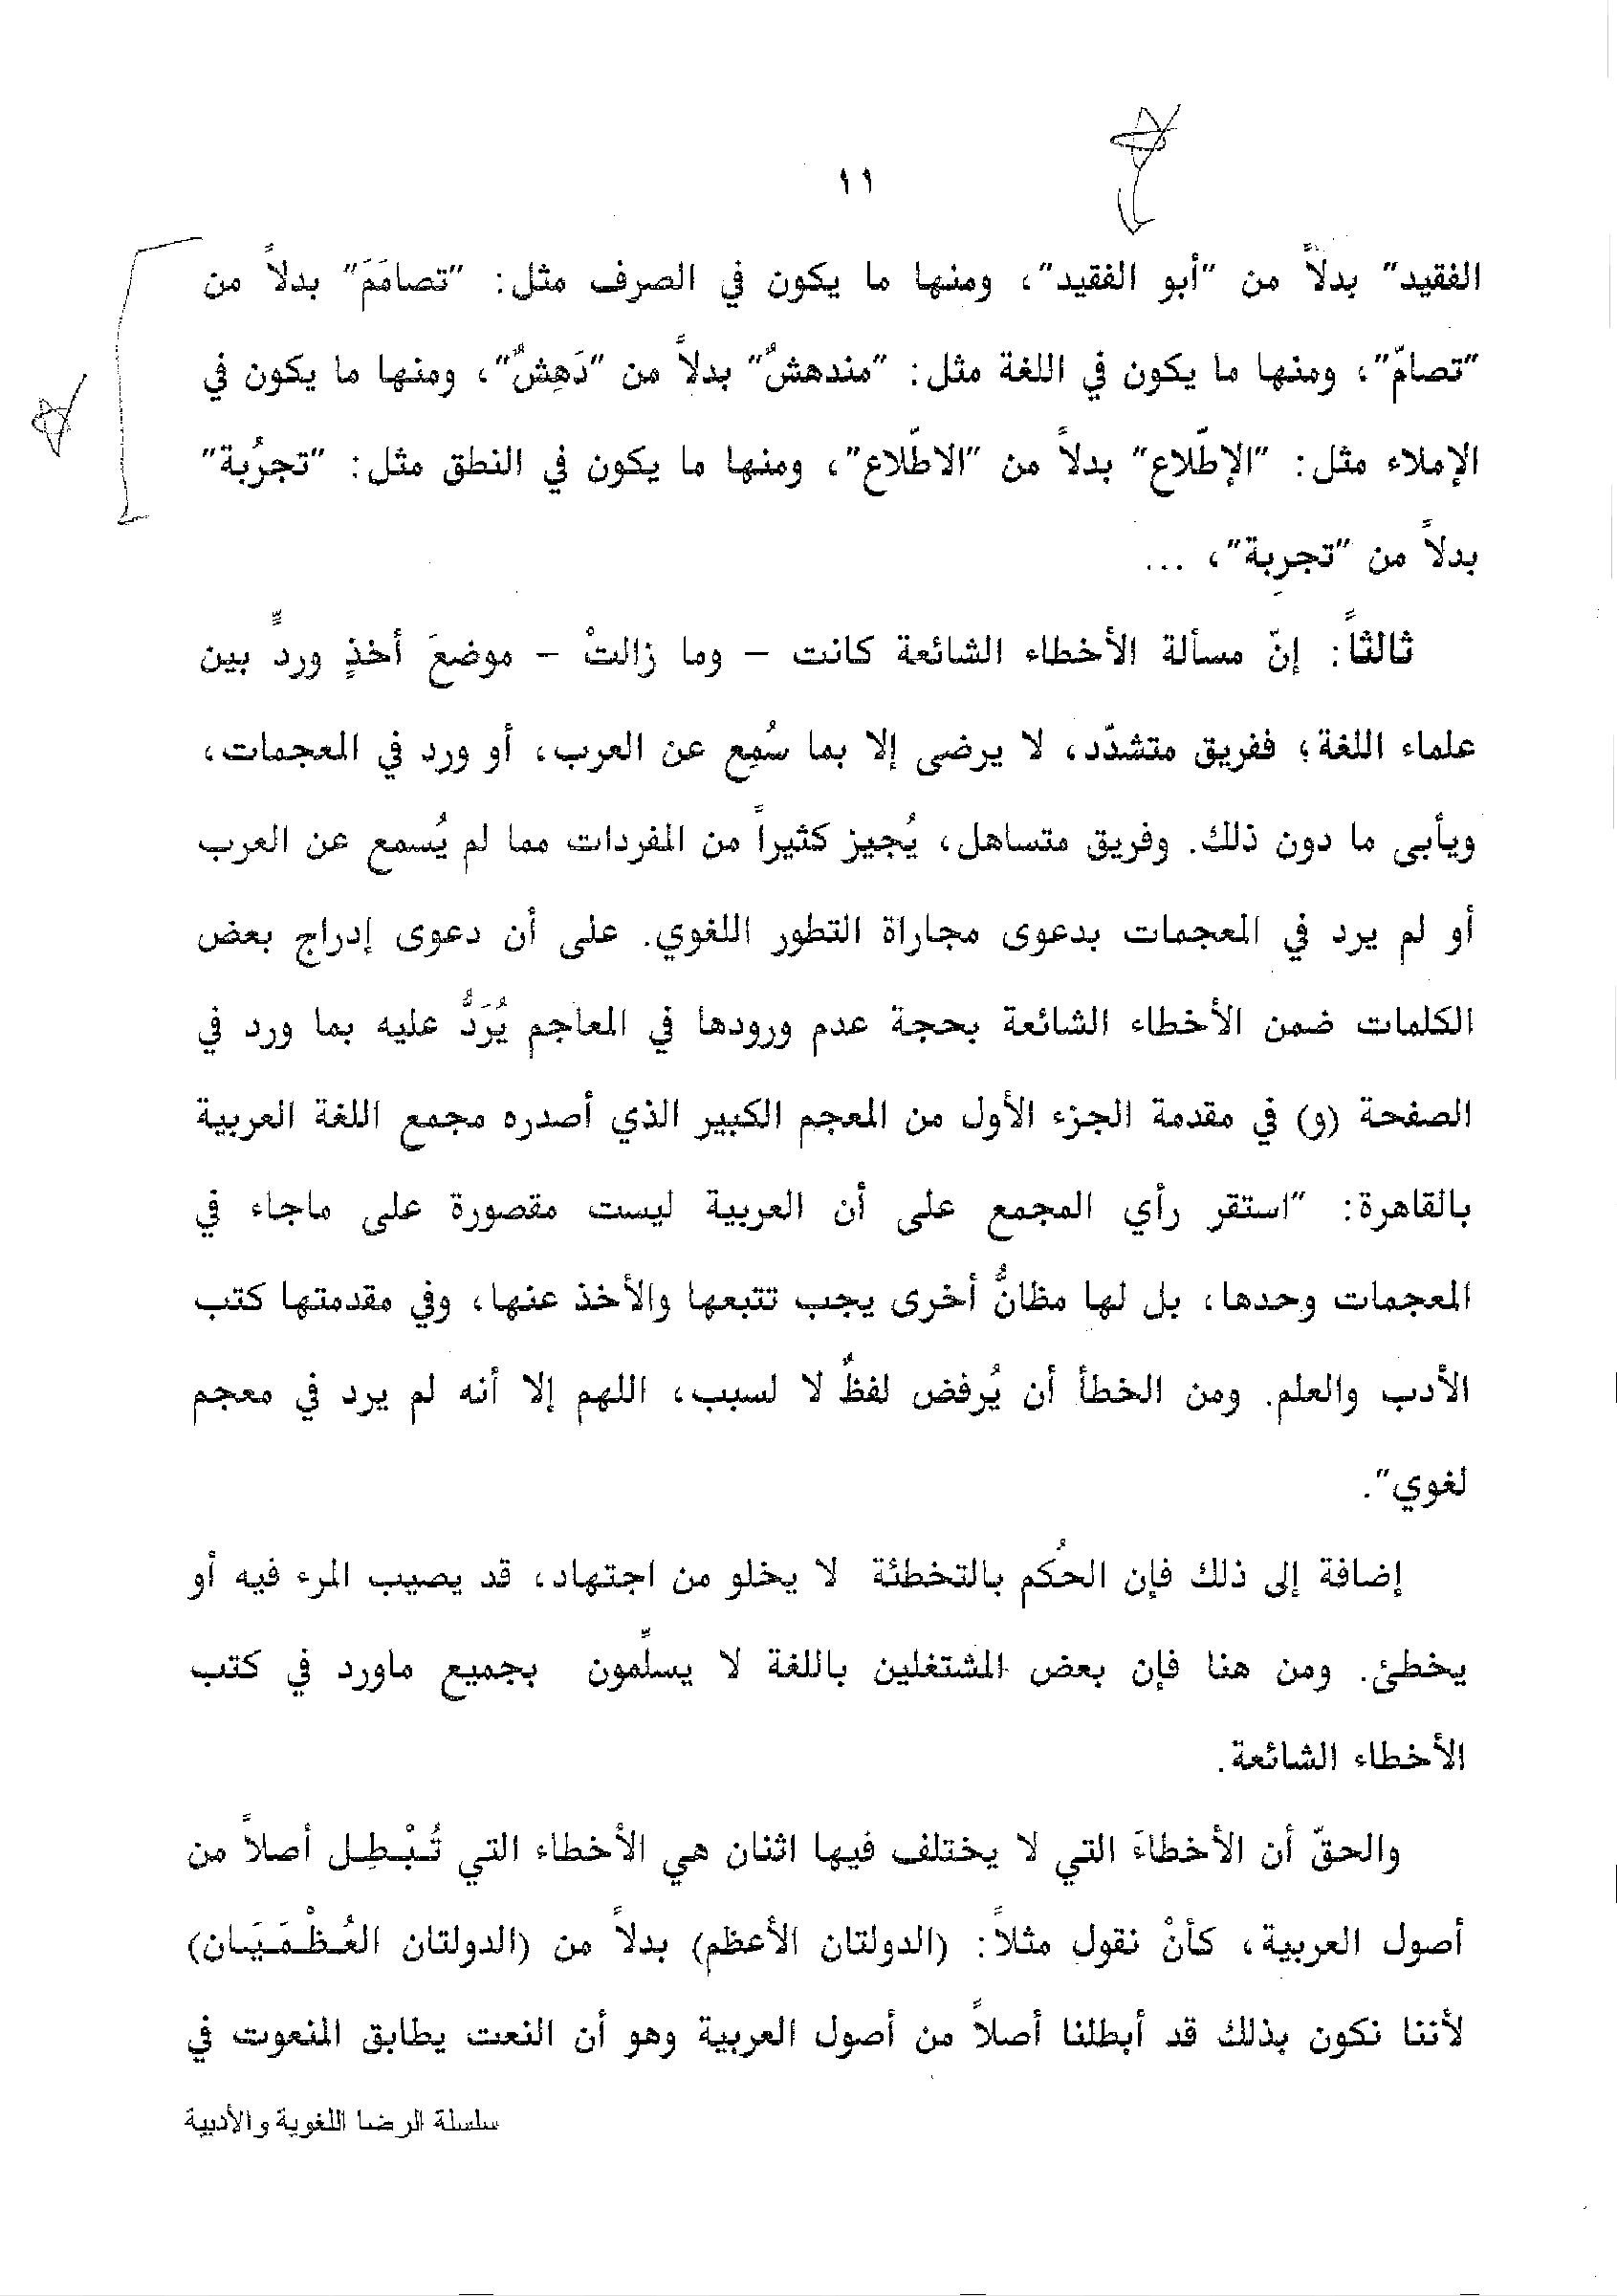 ١١
الفقيد" بدلاً من "أبو الفقيد"، ومنها ما يكون في الصرف مثل: "تصامَمَ" بدلاً من
"تصامّ"، ومنها ما يكون في اللغة مثل: "مندهشٌ" بدلاً من "دَهِشٌ"، ومنها ما يكون في
الإملاء مثل: "الإطّلاع" بدلاً من "الاطّلاع"، ومنها ما يكون في النطق مثل: "تجرُبة"
بدلاً من "تجرِبة"، ...
ثالثاً: إنّ مسألة الأخطاء الشائعة كانت – وما زالتْ – موضعَ أخذٍ وردٍّ بين
علماء اللغة؛ ففريق متشدّد، لا يرضى إلا بما سُمِع عن العرب، أو ورد في المعجمات،
ويأبى ما دون ذلك. وفريق متساهل، يُجيز كثيراً من المفردات مما لم يُسمع عن العرب
أو لم يرد في المعجمات بدعوى مجاراة التطور اللغوي. على أن دعوى إدراج بعض
الكلمات ضمن الأخطاء الشائعة بحجة عدم ورودها في المعاجم يُرَدُّ عليه بما ورد في
الصفحة (و) في مقدمة الجزء الأول من المعجم الكبير الذي أصدره مجمع اللغة العربية
بالقاهرة: "استقر رأي المجمع على أن العربية ليست مقصورة على ماجاء في
المعجمات وحدها، بل لها مظانُّ أخرى يجب تتبعها والأخذ عنها، وفي مقدمتها كتب
الأدب والعلم. ومن الخطأ أن يُرفض لفظٌ لا لسبب، اللهم إلا أنه لم يرد في معجم
لغوي".
إضافة إلى ذلك فإن الحُكم بالتخطئة لا يخلو من اجتهاد، قد يصيب المرء فيه أو
يخطئ. ومن هنا فإن بعض المشتغلين باللغة لا يسلّمون بجميع ماورد في كتب
الأخطاء الشائعة.
والحقّ أن الأخطاءَ التي لا يختلف فيها اثنان هي الأخطاء التي تُـبْـطِـل أصلاً من
أصول العربية، كأنْ نقول مثلاً: (الدولتان الأعظم) بدلاً من (الدولتان العُـظْـمَـيَـان)
لأننا نكون بذلك قد أبطلنا أصلاً من أصول العربية وهو أن النعت يطابق المنعوت في
سلسلة الرضا اللغوية والأدبية